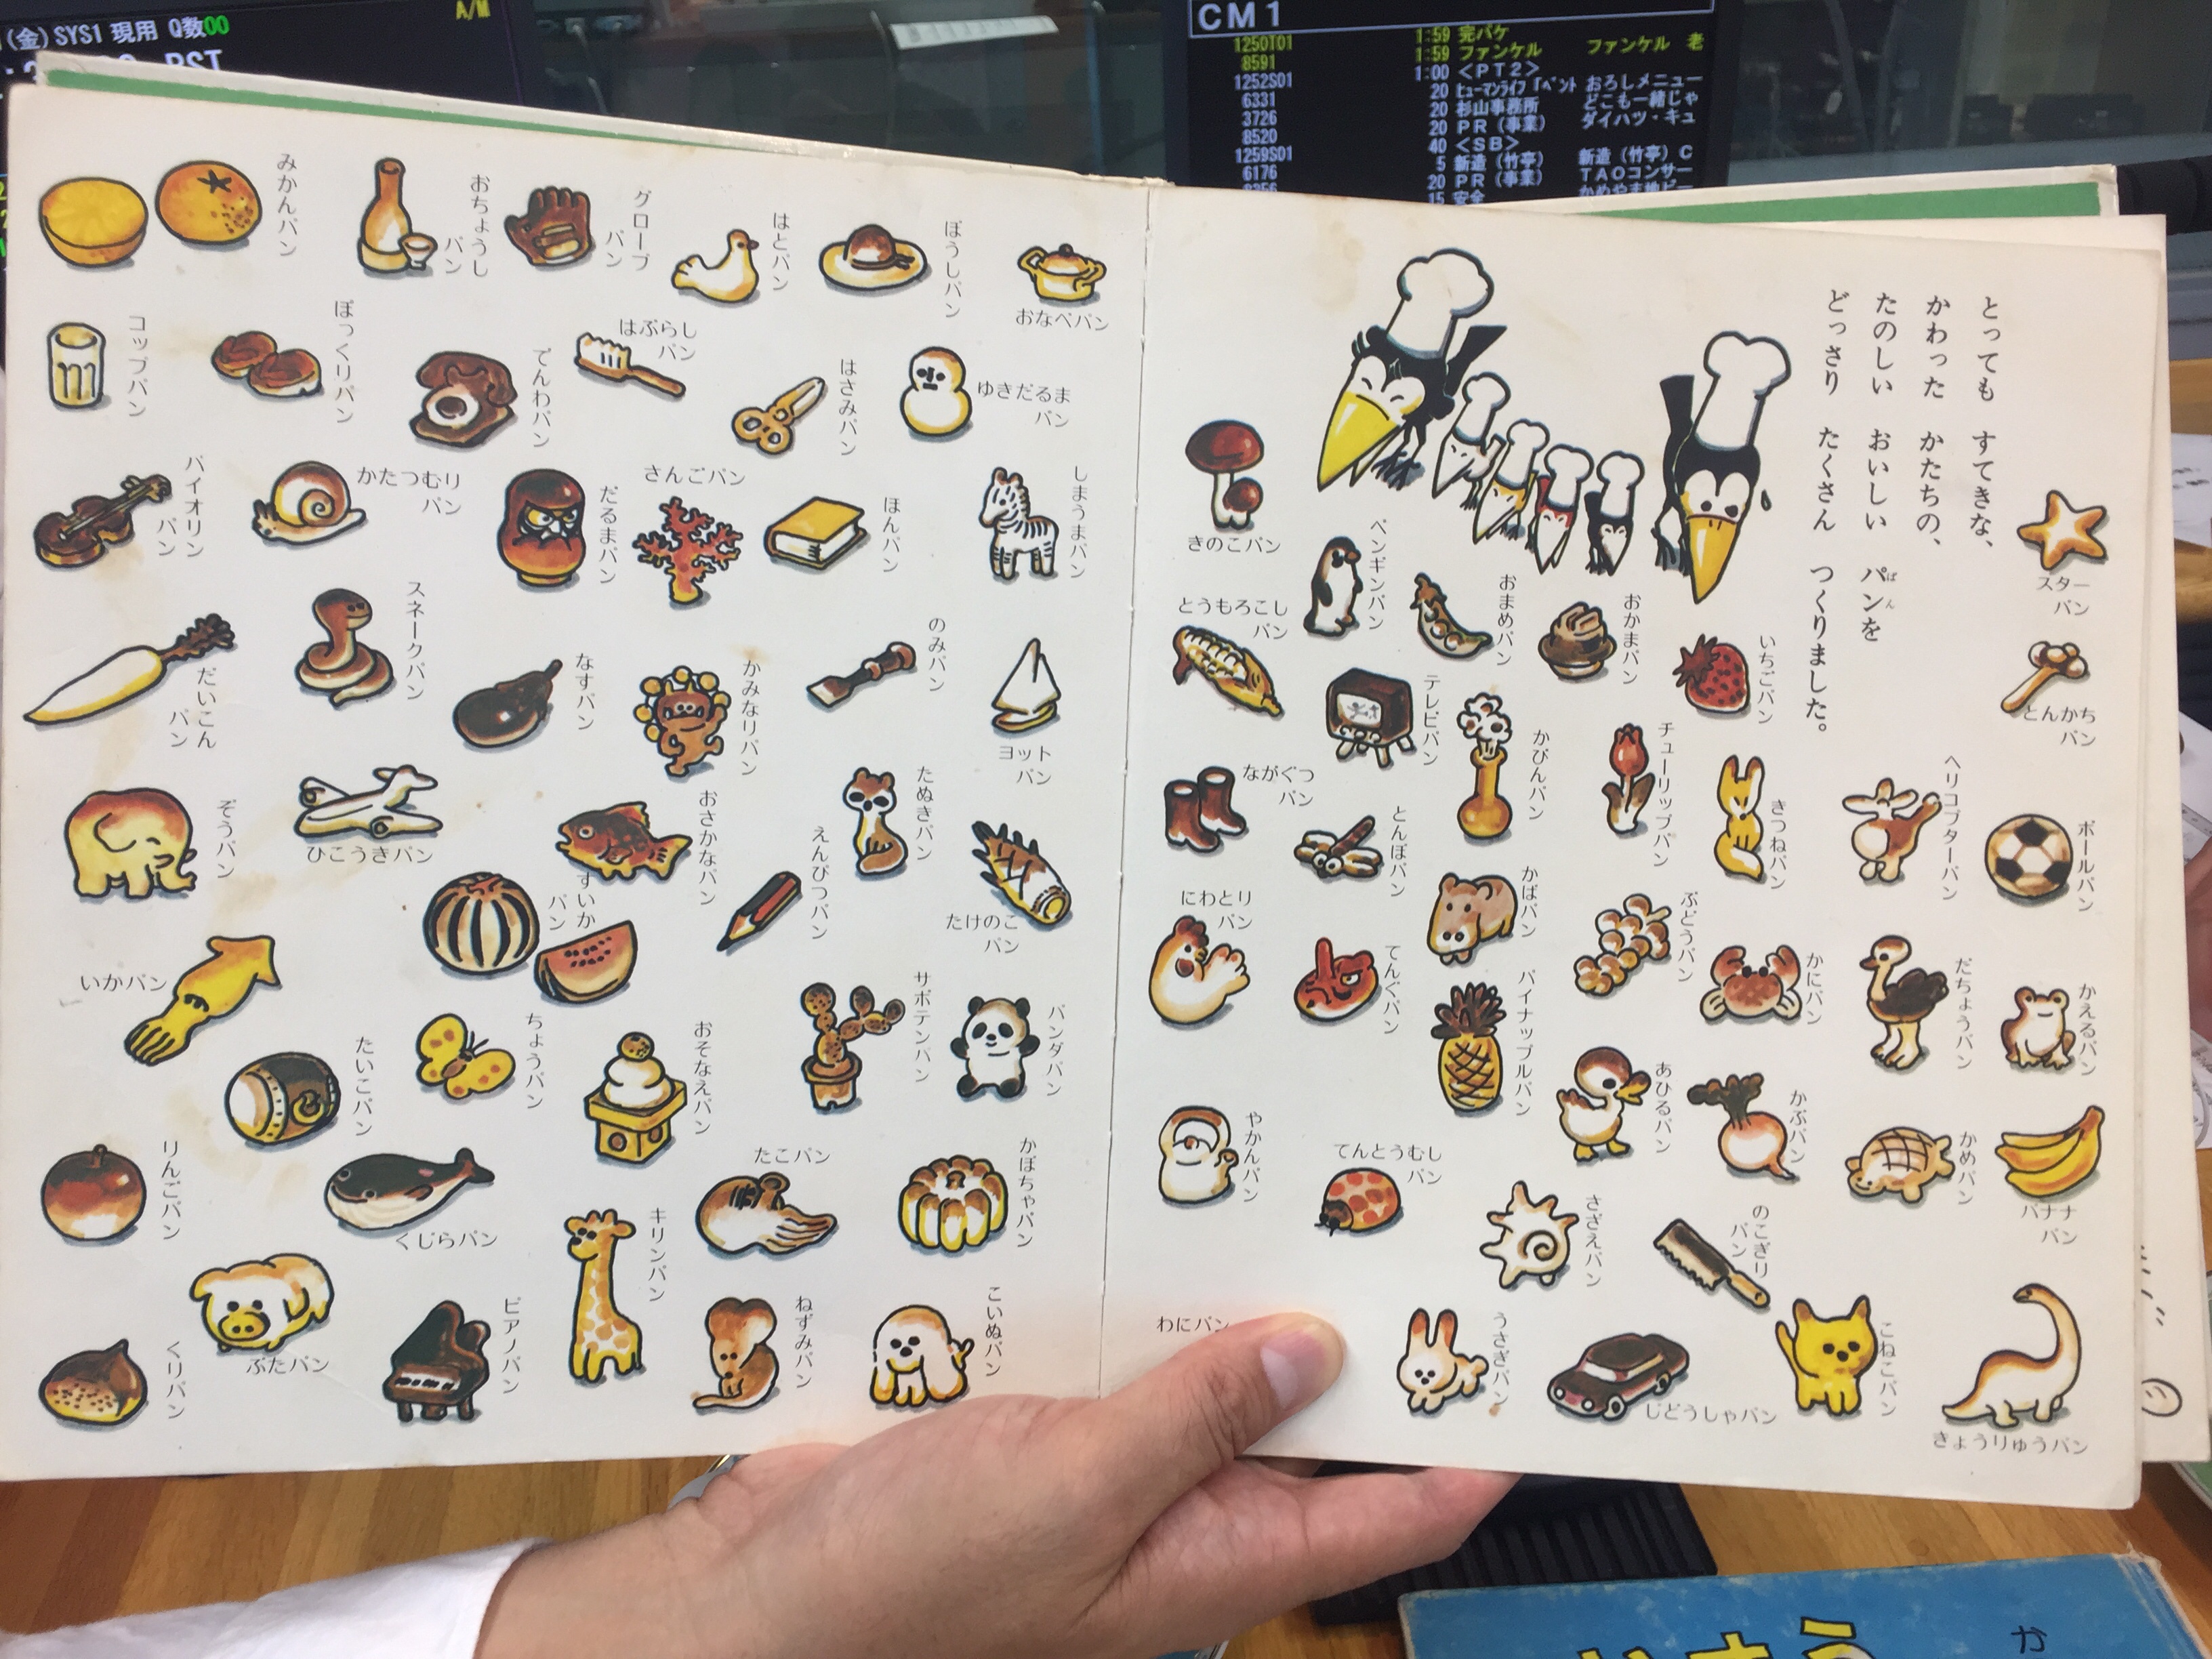 A/M
(金) SYS1 現用 Q数00
CM1
1250T01 1:59 完パケ
8591 1:59 ファンケル ファンケル 老
1252S01 1:00 <PT2>
6331 20 ﾋｭｰﾏﾝﾗｲﾌ「ﾍﾞﾝﾄ おろしメニュー
3726 20 杉山事務所 どこも一緒じゃ
8520 20 PR(事業) ダイハツ・キュ
40 <SB>
1259S01 5 新造(竹亭) 新造(竹亭)C
6176 20 PR(事業) TAOコンサー
15 安全
みかんパン
おちょうしパン
グローブパン
はとパン
ぼうしパン
おなべパン
コップパン
ぽっくりパン
でんわパン
はぶらしパン
はさみパン
ゆきだるまパン
バイオリンパン
かたつむりパン
だるまパン
さんごパン
ほんパン
しまうまパン
だいこんパン
スネークパン
なすパン
かみなりパン
のみパン
ヨットパン
ぞうパン
ひこうきパン
おさかなパン
すいかパン
えんぴつパン
たぬきパン
たけのこパン
いかパン
たいこパン
ちょうパン
おそなえパン
サボテンパン
パンダパン
りんごパン
くじらパン
たこパン
かぼちゃパン
くりパン
ぶたパン
ピアノパン
キリンパン
ねずみパン
こいぬパン
とっても すてきな、
かわった かたちの、
たのしい おいしい パンを
ぱん
どっさり たくさん つくりました。
きのこパン
ペンギンパン
おまめパン
おかまパン
いちごパン
スターパン
とうもろこしパン
テレビパン
かびんパン
チューリップパン
とんかちパン
ながぐつパン
とんぼパン
きつねパン
ヘリコプターパン
ボールパン
にわとりパン
てんぐパン
かばパン
ぶどうパン
かにパン
だちょうパン
かえるパン
パイナップルパン
あひるパン
かぶパン
かめパン
バナナパン
やかんパン
てんとうむしパン
さざえパン
のこぎりパン
わにパン
うさぎパン
じどうしゃパン
こねこパン
きょうりゅうパン
か